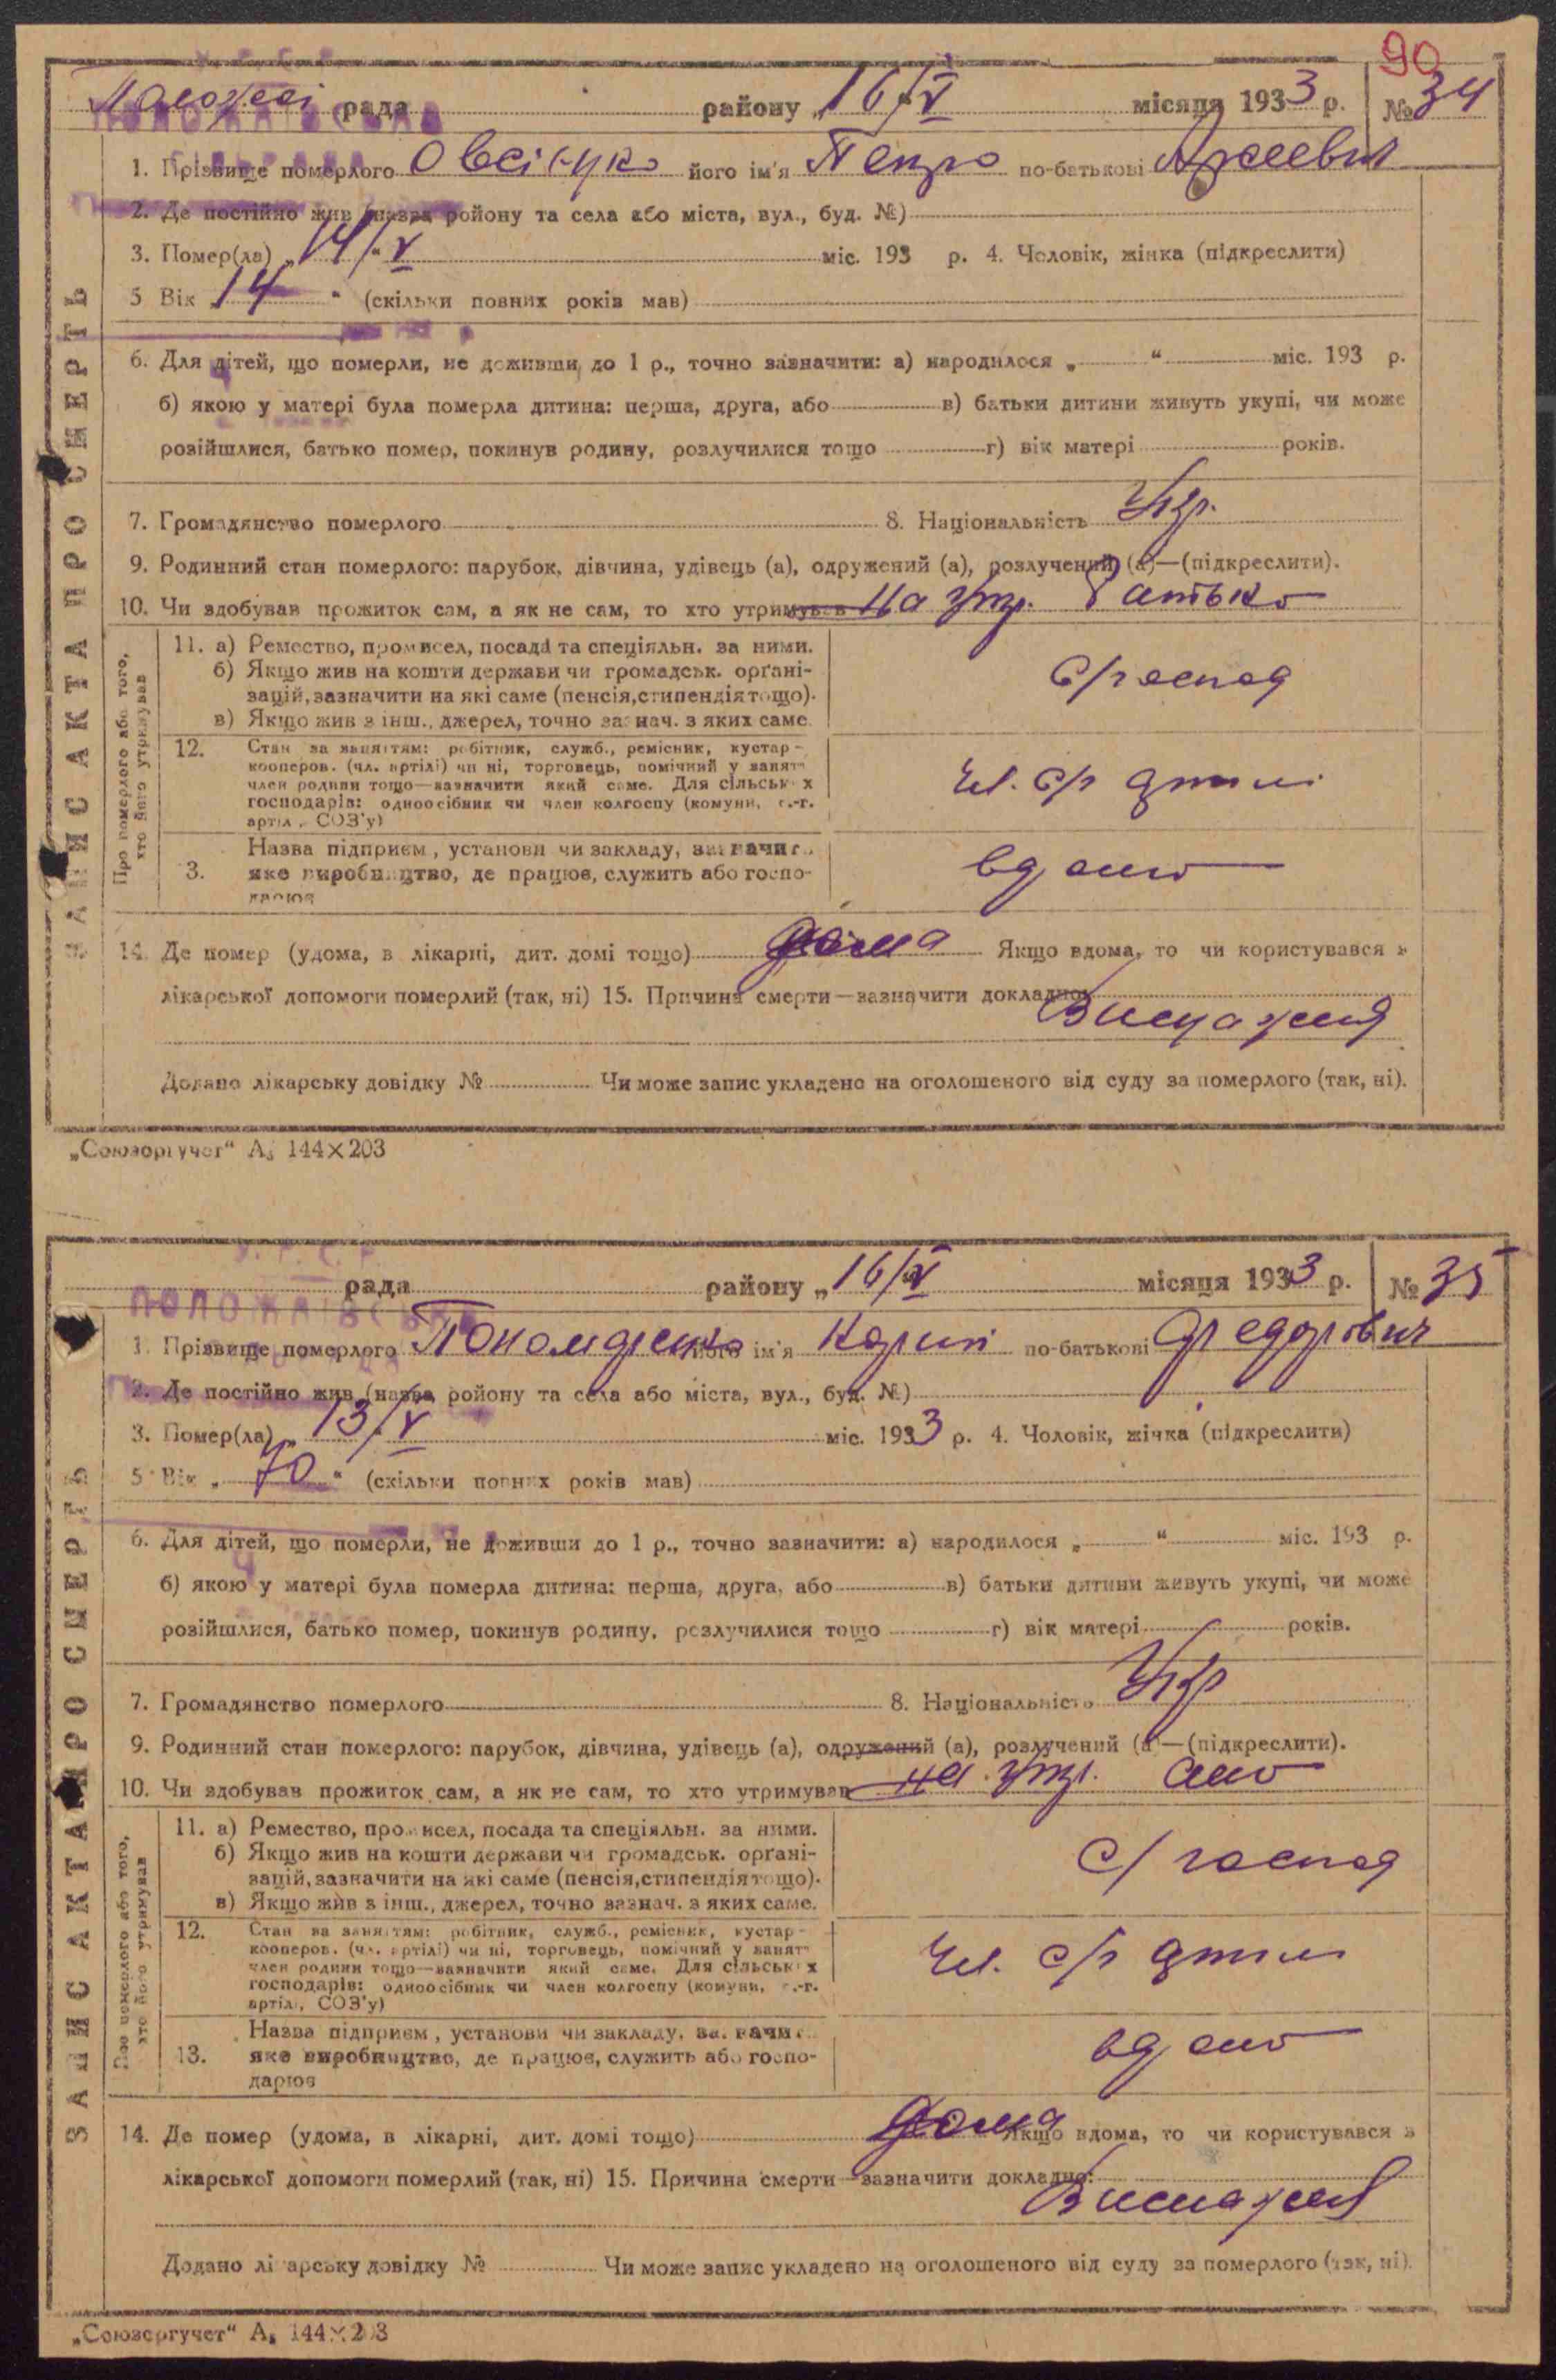 90
рада району „16/V місяця 1933 р. № 34
1. Прізвище померлого його ім'я Петро по-батькові
2. Де постійно жив (назва ройону та села або міста, вул., буд. №)
3. Помер(ла) „14/V міс. 193 р. 4. Чоловік, жінка (підкреслити)
5 Вік „14“ (скільки повних років мав)
6. Для дітей, що померли, не доживши до 1 р., точно зазначити: а) народилося „ “ міс. 193 р.
б) якою у матері була померла дитина: перша, друга, або в) батьки дитини живуть укупі, чи може
розійшлися, батько помер, покинув родину, розлучилися тощо г) вік матері років.
7. Громадянство померлого 8. Національність Укр.
9. Родинний стан померлого: парубок, дівчина, удівець (а), одружений (а), розлучений (а)—(підкреслити).
10. Чи здобував прожиток сам, а як не сам, то хто утримував на утр. батько
ЗАПИС АКТА ПРО СМЕРТЬ
Про померлого або того,
хто його утримував
11. а) Ремество, промисел, посада та спеціяльн. за ними.
б) Якщо жив на кошти держави чи громадськ. орґані-
зацій, зазначити на які саме (пенсія, стипендія тощо).
в) Якщо жив з інш., джерел, точно зазнач. з яких саме.
С/господ
12. Стан за заняттям: робітник, служб., ремісник, кустар-
кооперов. (чл. артілі) чи ні, торговець, помічний у занятт
член родини тощо—зазначити який саме. Для сільських
господарів: одноосібник чи член колгоспу (комуни, с.-г.
артілі, СОЗ'у)
Чл. с/г артілі
Назва підприєм, установи чи закладу, зазначит
3. яке виробництво, де працює, служить або госпо-
дарює
14. Де помер (удома, в лікарні, дит. домі тощо) дома Якщо вдома, то чи користувався з
лікарської допомоги померлий (так, ні) 15. Причина смерти—зазначити докладно:
Виснаження
Додано лікарську довідку № Чи може запис укладено на оголошеного від суду за померлого (так, ні).
„Союзоргучет“ А₅ 144×203
У. Р. С. Р.
рада району „16/V місяця 1933 р. № 35
ПОЛОЖАЇВСЬКА
1. Прізвище померлого Пономаренко його ім'я Карпій по-батькові Федорович
2. Де постійно жив (назва ройону та села або міста, вул., буд. №)
3. Помер(ла) „13/V міс. 1933 р. 4. Чоловік, жінка (підкреслити)
5 Вік „70“ (скільки повних років мав)
6. Для дітей, що померли, не доживши до 1 р., точно зазначити: а) народилося „ “ міс. 193 р.
б) якою у матері була померла дитина: перша, друга, або в) батьки дитини живуть укупі, чи може
розійшлися, батько помер, покинув родину, розлучилися тощо г) вік матері років.
7. Громадянство померлого 8. Національність Укр
9. Родинний стан померлого: парубок, дівчина, удівець (а), одружений (а), розлучений (а—(підкреслити).
10. Чи здобував прожиток сам, а як не сам, то хто утримував на утр.
ЗАПИС АКТА ПРО СМЕРТЬ
Про померлого або того,
хто його утримував
11. а) Ремество, промисел, посада та спеціяльн. за ними.
б) Якщо жив на кошти держави чи громадськ. орґані-
зацій, зазначити на які саме (пенсія, стипендія тощо).
в) Якщо жив з інш., джерел, точно зазнач. з яких саме.
С/господ
12. Стан за заняттям: робітник, служб., ремісник, кустар-
кооперов. (чл. артілі) чи ні, торговець, помічний у занятт
член родини тощо—зазначити який саме. Для сільських
господарів: одноосібник чи член колгоспу (комуни, с.-г.
артілі, СОЗ'у)
Чл. с/г артілі
Назва підприєм, установи чи закладу, зазначит
13. яке виробництво, де працює, служить або госпо-
дарює
14. Де помер (удома, в лікарні, дит. домі тощо) дома Якщо вдома, то чи користувався з
лікарської допомоги померлий (так, ні) 15. Причина смерти—зазначити докладно:
Виснаження
Додано лікарську довідку № Чи може запис укладено на оголошеного від суду за померлого (так, ні).
„Союзоргучет“ А₅ 144×203